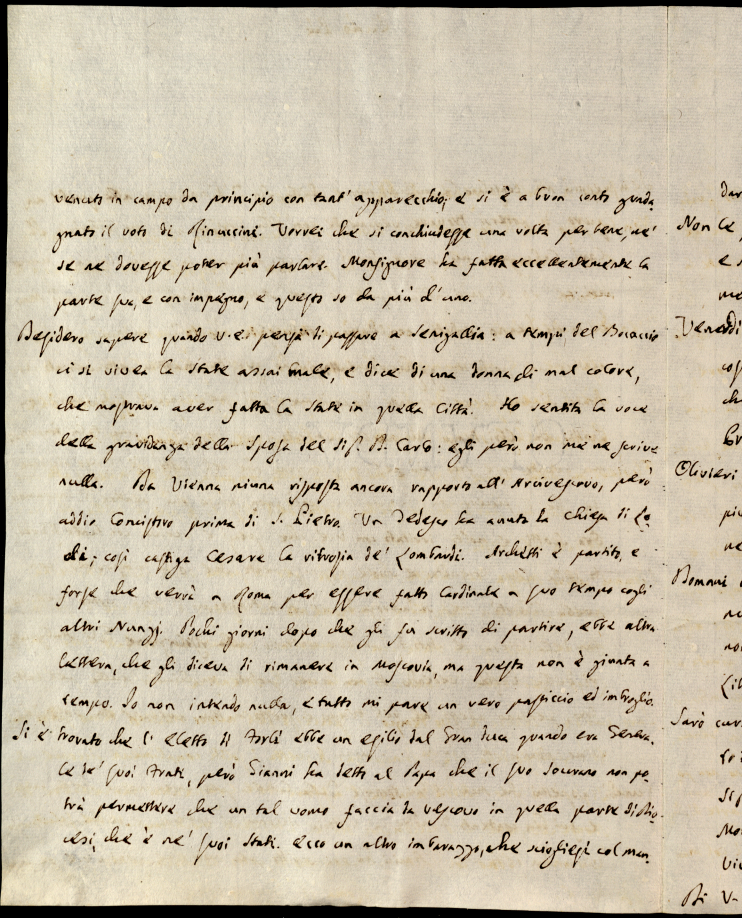 venuto in campo da principio con tant' apparecchio; e si è a buon conto guada-
gnato il voto di Rinuccini. Vorrei che si conchiudesse una volta per bene, nè
se ne dovesse poter più parlare. Monsignore ha fatta eccellentemente la
parte sua, e con impegno, e questo so da più d'uno.
Desidero sapere quando V. E. pensa di passare a Senigallia: a tempi del Bocaccio
ci si vivea la state assai male, e dice di una donna di mal colore,
che mostrava aver fatta la state in quella Città. Ho sentita la voce
della gravidanza della Sposa del Sig. D. Carlo: egli però non me ne scrive
nulla. Da Vienna niuna risposta ancora rapporto all' Arcivescovo, però
addio Concistoro prima di S. Pietro. Un Tedesco ha avuta la chiesa di Lo-
di; così castiga Cesare la ritrosia de' Lombardi. Archetti è partito, e
forse che verrà a Roma per essere fatto Cardinale a suo tempo cogli
altri Nunzj. Pochi giorni dopo che gli fu scritto di partire, ebbe altra
lettera, che gli diceva di rimanere in Moscovia, ma questa non è giunta a
tempo. Io non intendo nulla, e tutto mi pare un vero pasticcio ed imbroglio.
Si è trovato che l' eletto di Forlì ebbe un esilio dal Gran Duca quando era Genera-
le de' suoi Frati, però Gianni ha detto al Papa che il suo Sovrano non po-
trà permettere che un tal uomo faccia da vescovo in quella parte di Dio-
cesi, che è ne' suoi Stati. Ecco un altro imbarazzo, che sciogliesi col man-
dar
Non le
e s
me
Venerdì
cos
ch
Olivieri
più
ne
no
Sarò
Di V.